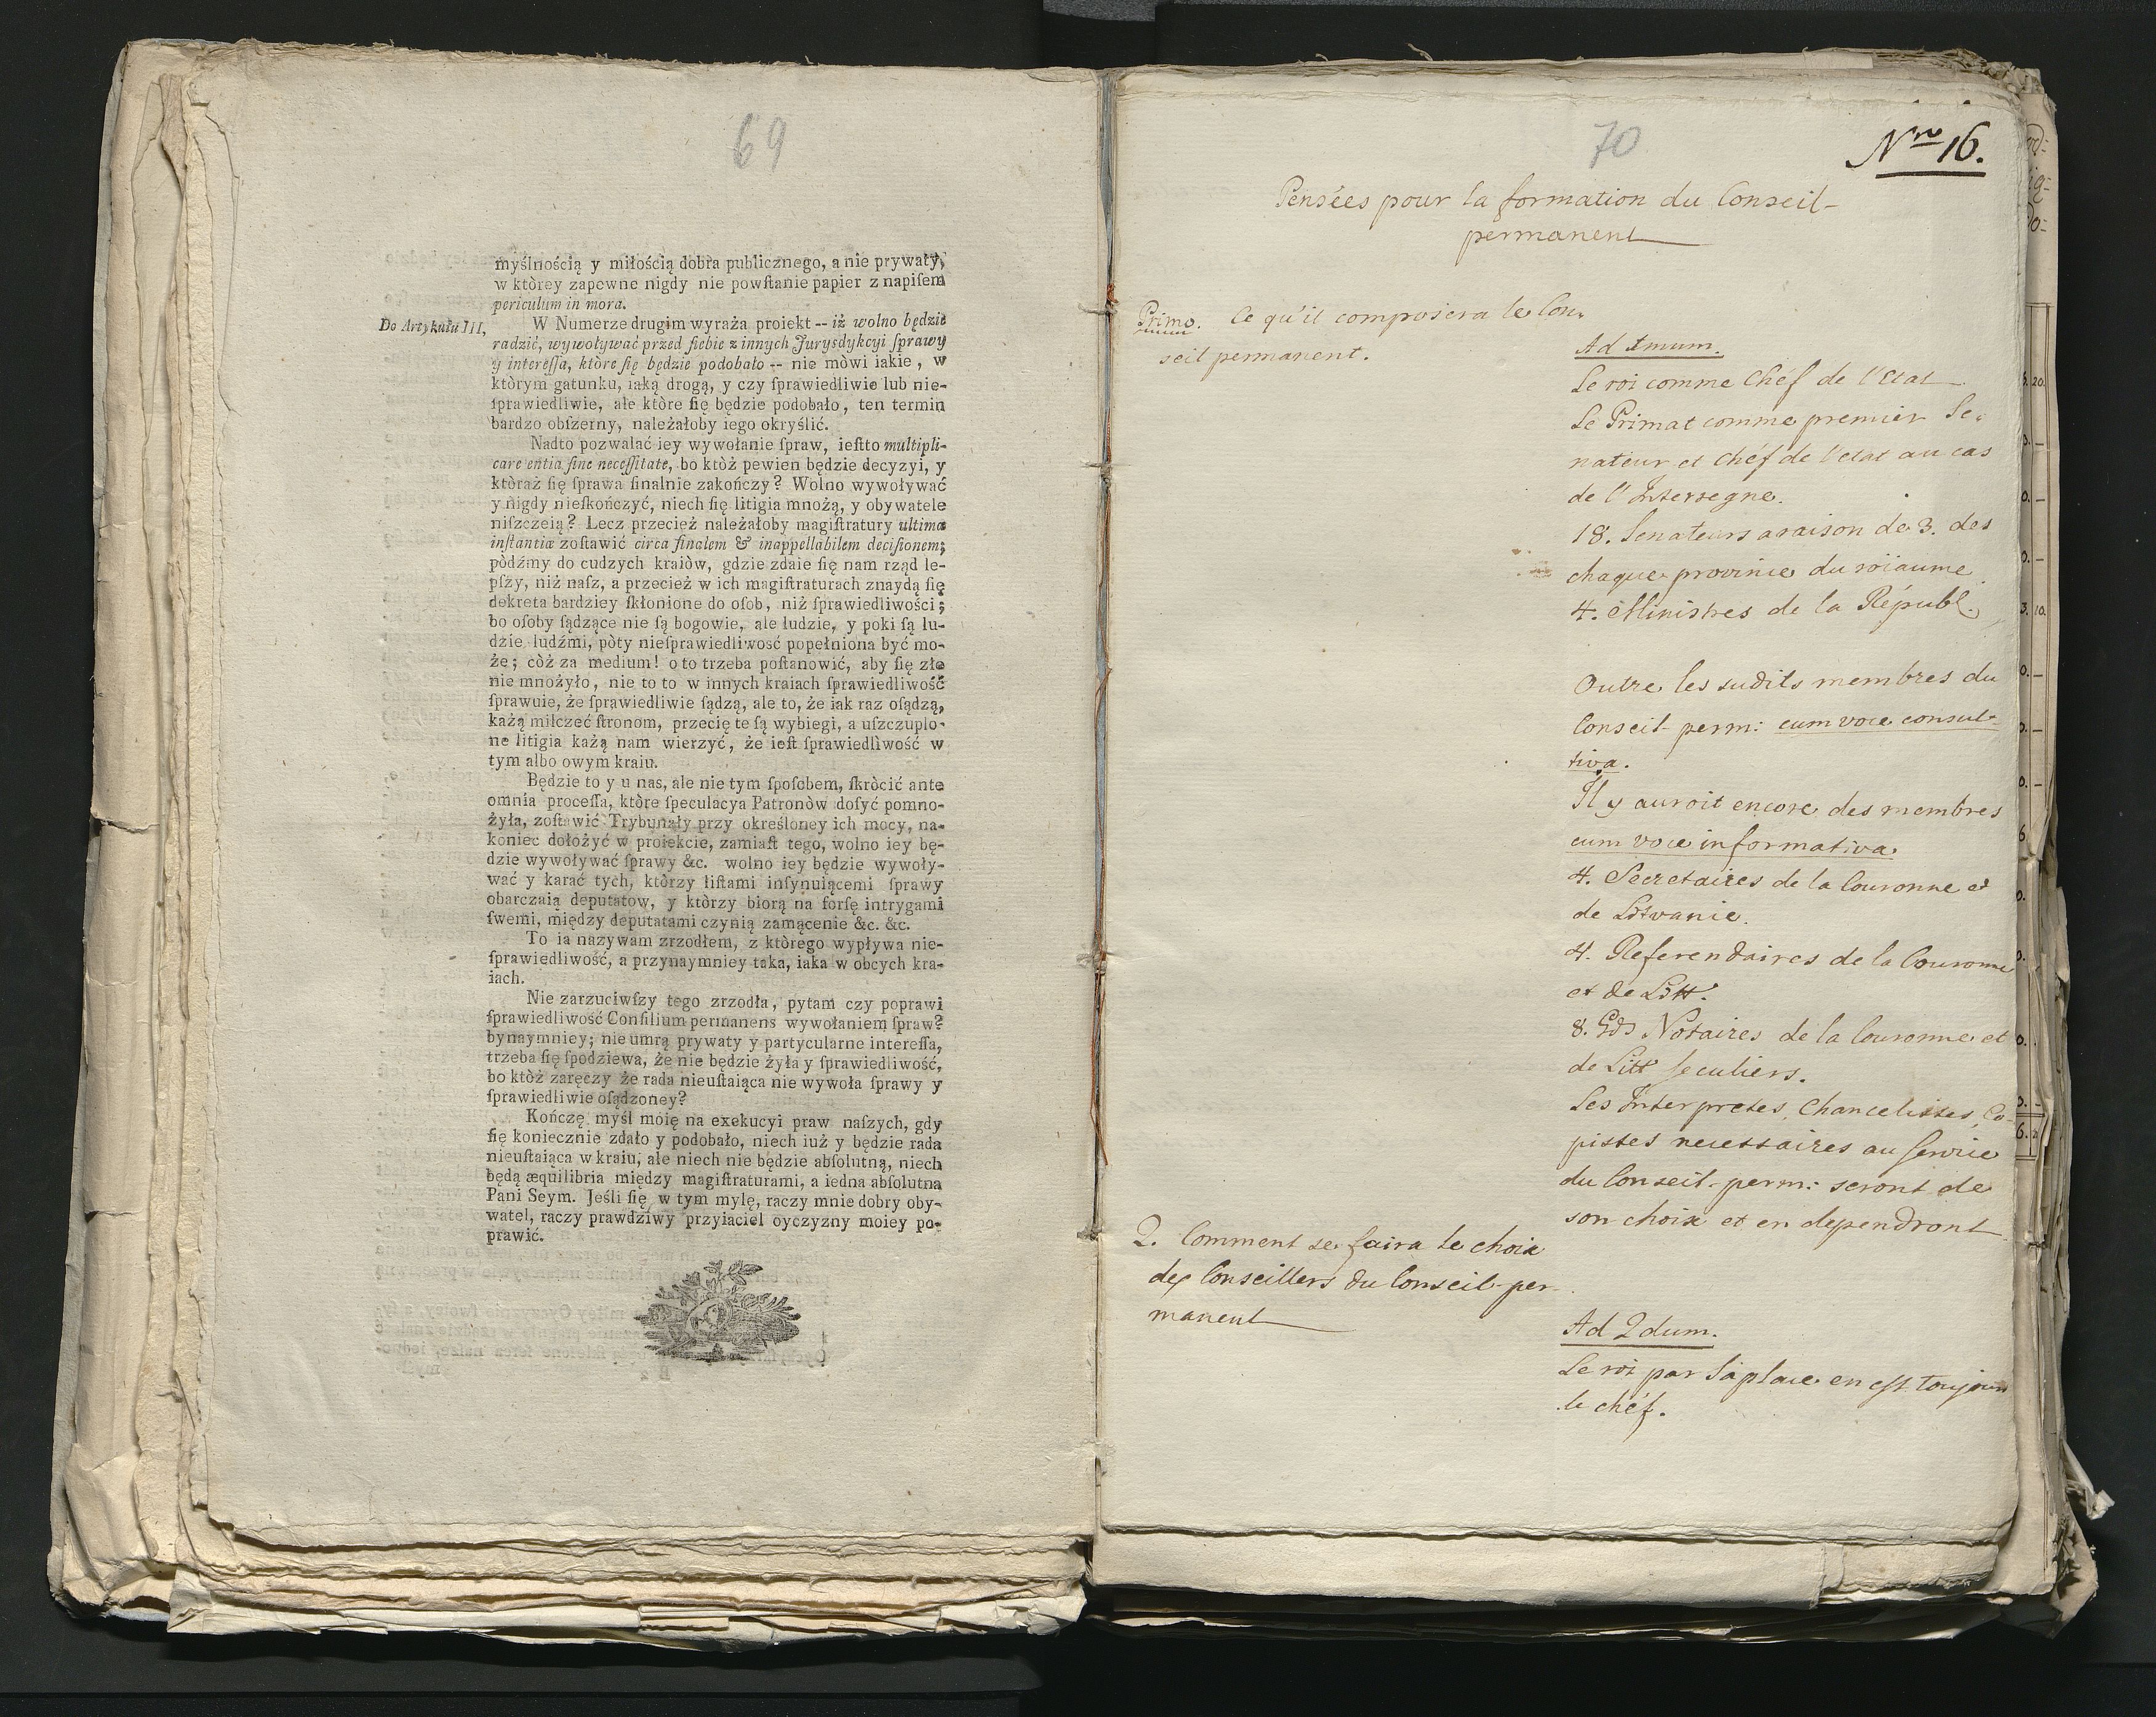 69
myślnością y miłością dobra publicznego, a nie prywaty,
w ktòrey zapewne nigdy nie powſtanie papier z napiſem
periculum in mora.
Do Artykułu III,
W Numerze drugim wyraża proiekt -- iż wolno będzie
radzić, wywoływać przed ſiebie z innych Jurysdykcyi ſprawy
y intereſſa, ktòre ſię będzie podobało -- nie mòwi iakie, w
ktòrym gatunku, iaką drogą, y czy ſprawiedliwie lub nie-
ſprawiedliwie, ale ktòre ſię będzie podobało, ten termin
bardzo obſzerny, należałoby iego okryślić.
Nadto pozwalać iey wywołanie ſpraw, ieſtto multipli-
care entia ſine neceſſitate, bo ktòż pewien będzie decyzyi, y
ktòraż ſię ſprawa finalnie zakończy? Wolno wywoływać
y nigdy nieſkończyć, niech ſię litigia mnożą, y obywatele
niſzczeią? Lecz przecież należałoby magiſtratury ultimæ
inſtantiæ zoſtawić circa finalem & inappellabilem deciſionem;
pòdźmy do cudzych kraiòw, gdzie zdaie ſię nam rząd le-
pſzy, niż naſz, a przecież w ich magiſtraturach znaydą ſię
dekreta bardziey ſkłonione do oſob, niż ſprawiedliwości;
bo oſoby ſądzące nie ſą bogowie, ale ludzie, y poki ſą lu-
dzie ludźmi, pòty nieſprawiedliwosć popełniona być mo-
że; còż za medium! oto trzeba poſtanowić, aby ſię złe
nie mnożyło, nie to to w innych kraiach ſprawiedliwość
ſprawuie, że ſprawiedliwie ſądzą, ale to, że iak raz oſądzą,
każą milczeć ſtronom, przecię te ſą wybiegi, a uſzczuplo-
ne litigia każą nam wierzyć, że ieſt ſprawiedliwość w
tym albo owym kraiu.
Będzie to y u nas, ale nie tym ſpoſobem, ſkròcić ante
omnia proceſſa, ktòre ſpeculacya Patronòw doſyć pomno-
żyła, zoſtawić Trybunały przy okreśIoney ich mocy, na-
koniec dołożyć w proiekcie, zamiaſt tego, wolno iey bę-
dzie wywoływać ſprawy &c. wolno iey będzie wywoły-
wać y karać tych, ktòrzy liſtami inſynuiącemi ſprawy
obarczaią deputatow, y ktòrzy biorą na forſę intrygami
ſwemi, między deputatami czynią zamącenie &c. &c.
To ia nazywam zrzodłem, z ktòrego wypływa nie-
ſprawiedliwość, a przynaymniey taka, iaka w obcych kra-
iach.
Nie zarzuciwſzy tego zrzodła, pytam czy poprawi
ſprawiedliwość Conſilium permanens wywołaniem ſpraw?
bynaymniey; nie umrą prywaty y partycularne intereſſa,
trzeba ſię ſpodziewa, że nie będzie żyła y ſprawiedliwość,
bo ktòż zaręczy że rada nieuſtaiąca nie wywoła ſprawy y
ſprawiedliwie oſądzoney?
Kończę myśl moię na exekucyi praw naſzych, gdy
ſię koniecznie zdało y podobało, niech iuż y będzie rada
nieuſtaiąca w kraiu, ale niech nie będzie abſolutną, niech
będą æquilibria między magiſtraturami, a iedna abſolutna
Pani Seym. Jeśli ſię w tym mylę, raczy mnie dobry oby-
watel, raczy prawdziwy przyiaciel oyczyzny moiey po-
prawić.
70
Nro 16.
Pensées pour la formation du Conseil-
permanent
Primo. Ce qu'il composera le Con-
seil permanent.
Ad 1mum.
Le roi comme Chéf de l'Etat
Le Primat comme premier Se-
nateur et Chéf de l'etat au cas
de l'Interregne.
18. Senateurs a raison de 3. des
chaque province du roïiaume
4. Ministres de la Républ.
Outre les sudits membres du
Conseil-perm: cum voce consul-
tiva.
Il y auroit encore des membres
cum voce informativa.
4. Secretaires de la Couronne et
de Litvanie.
4. Referendaires de la Couronne
et de Litt.
8. Gds Notaires de la Couronne et
de Litt seculiers.
Les Interpretes, Chancelistes, Co-
pistes necessaires au service
du Conseil-perm: seront de
son choix et en dependront
2. Comment se faira le choix
des Conseillers du Conseil-per-
manent
Ad 2dum.
Le roi par sa place en est toujours
le chéf.